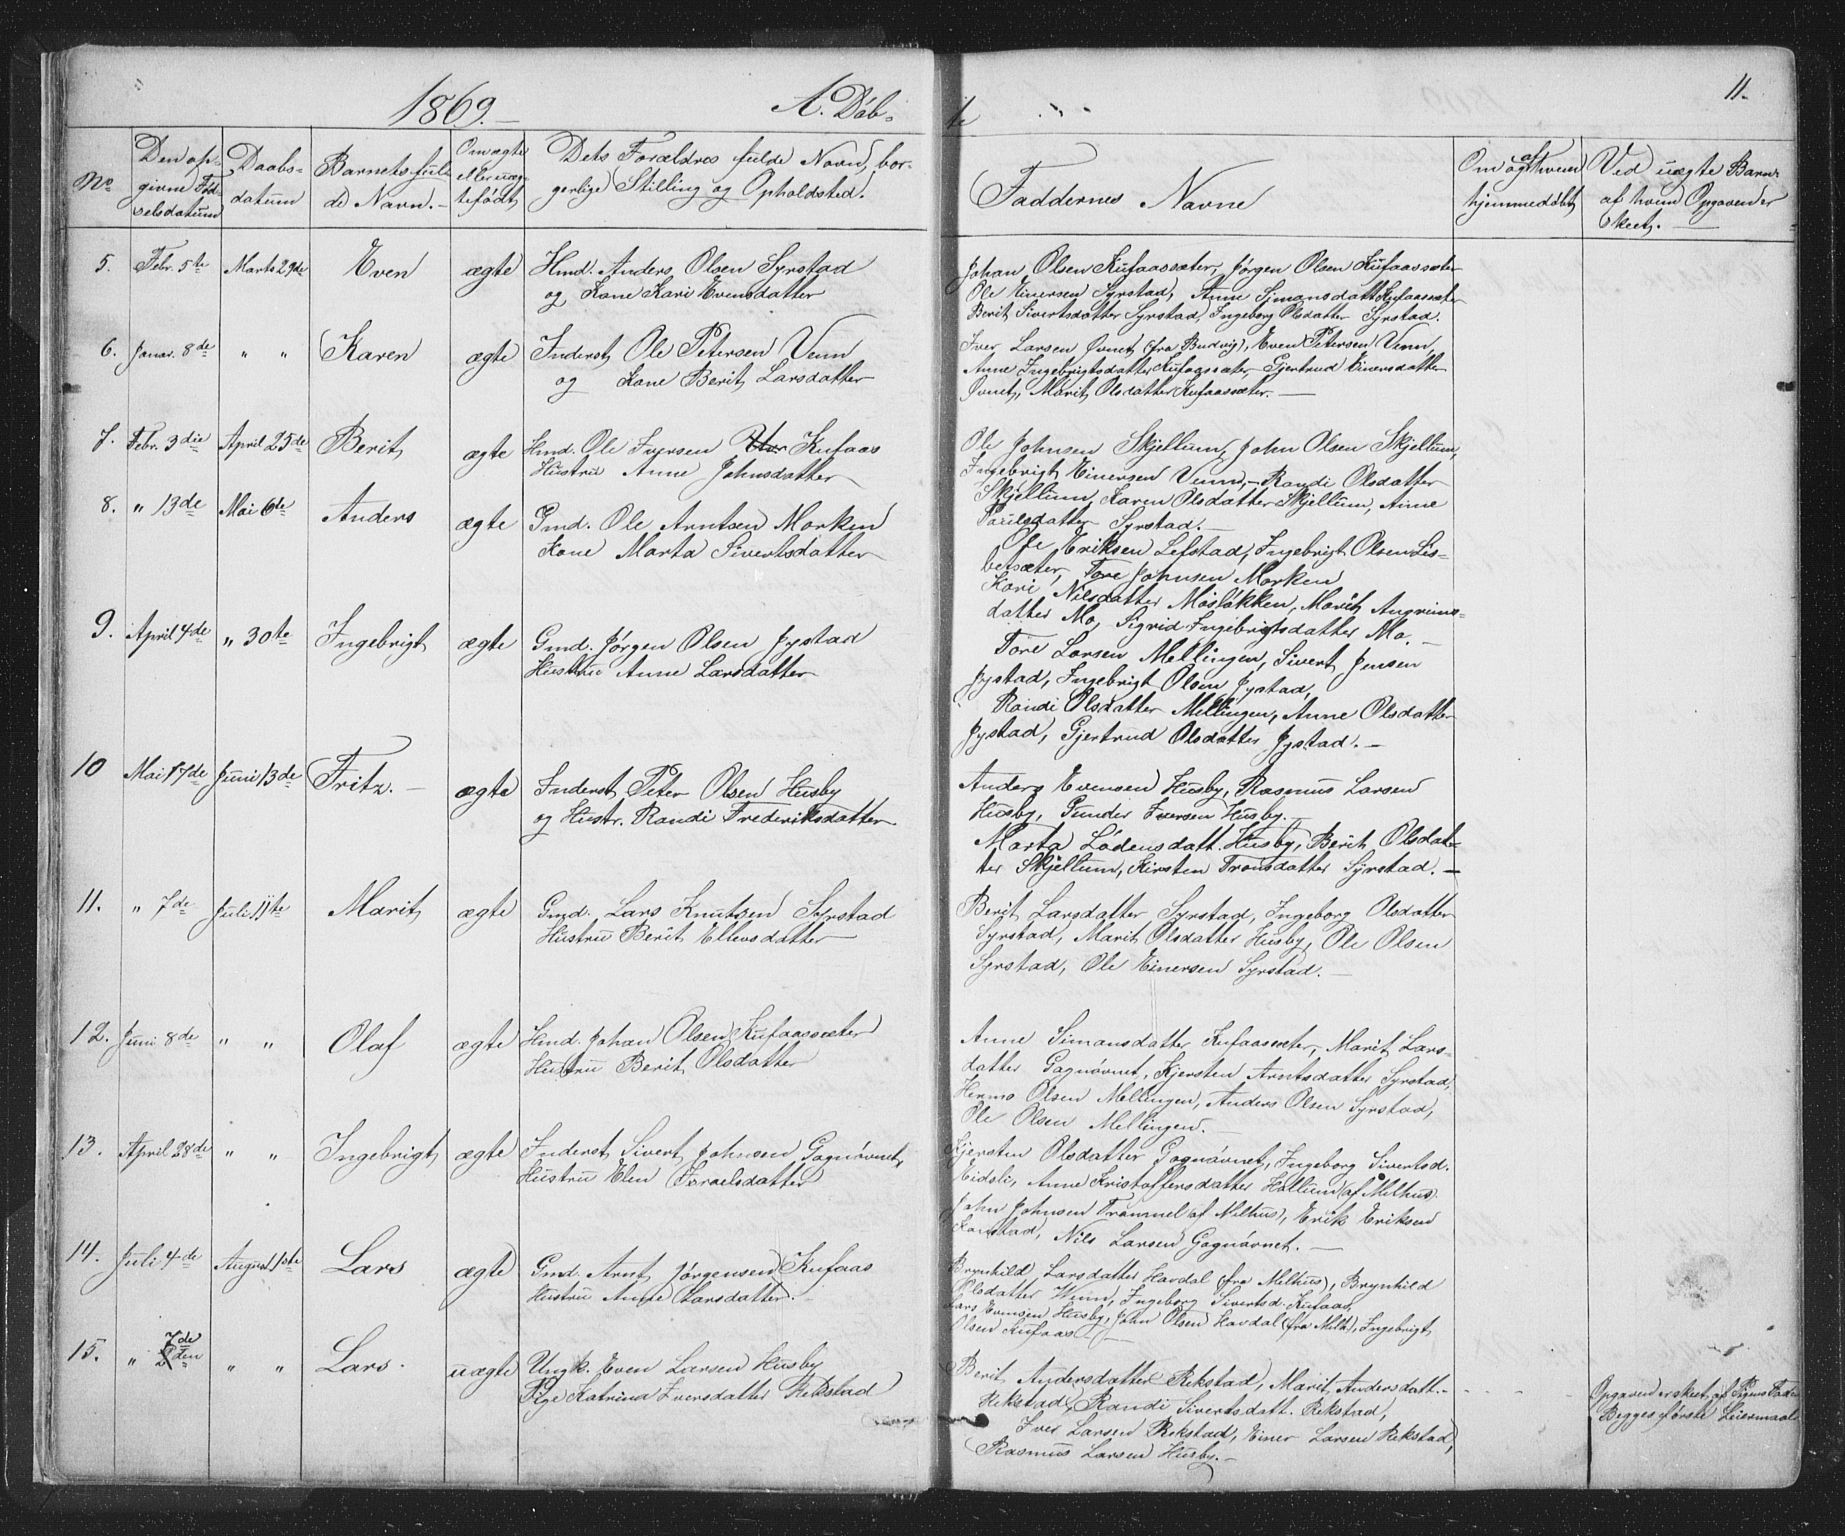 1869. A. Døb-
te
11.
No
Den op-
givne Fød-
selsdatum
Daabs-
datum
Barnets ful-
de Navn.
Om ægte
eller uæg-
te født
Dets Forældres fulde Navn, bor-
gerlige Stilling og Opholdsted.
Faddernes Navne
Om og af hvem
hjemmedøbt
Ved uægte Børn
af hvem Opgaven er
skeet.
5. Febr. 5te Marts 29de Even ægte Hmd. Anders Olsen Syrstad
og Kone Kari Evensdatter
Johan Olsen Kufaassæter, Jørgen Olsen Kufaassæter
Ole Einersen Syrstad, Anne Simonsdatt. Kufaassæter
Berit Sivertsdatter Syrstad, Ingeborg Olsdatter Syrstad.
6. Januar. 8de " " Karen ægte Inderst Ole Petersen Venn
og Kone Berit Larsdatter
Iver Larsen Øvnet (fra Budvig), Even Petersen Venn,
Anne Ingebrigtsdatter Kufaassæter Gjertrud Einersdatter
Øvnet, Marit Olsdatter Kufaassæter.
7. Febr. 3die April 25de Berit ægte Hmd. Ole Iversen Kufaas
Hustru Anne Johnsdatter
Ole Johnsen Skjellum, John Olsen Skjellum,
Ingebrigt Einersen Venn, Randi Olsdatter
Skjellum, Karen Olsdatter Skjellum, Anne
Paulsdatter Syrstad.
8. " 13de Mai 6te Anders ægte Gmd. Ole Arntsen Morken
Kone Marta Sivertsdatter
Ole Eriksen Lefstad, Ingebrigt Olsen Lis-
betsæter, Tore Johnsen Morken
Kari Nilsdatter Mosløkken, Marit Angrims-
datter Mo, Sigrid Ingebrigtsdatter Mo.
9. April 4de " 30te Ingebrigt ægte Gmd. Jørgen Olsen Jystad
Hustru Anne Larsdatter
Tore Larsen Mellingen, Sivert Jensen
Jystad, Ingebrigt Olsen Jystad,
Randi Olsdatter Mellingen, Anne Olsdatter
Jystad, Gjertrud Olsdatter Jystad.
10 Mai 17de Juni 13de Fritz. ægte Inderst Peter Olsen Husby
og Hustr. Randi Frederiksdatter
Anders Evensen Husby, Rasmus Larsen
Husby, Gunder Iversen Husby.
Marta Lodensdatt. Husby, Berit Olsdat-
ter Skjellum, Kirsten Tronsdatter Syrstad.
11. " 7de Juli 11te Marit ægte Gmd. Lars Knutsen Syrstad
Hustru Berit Ellevsdatter
Berit Larsdatter Syrstad, Ingeborg Olsdatter
Syrstad, Marit Olsdatter Husby, Ole Olsen
Syrstad, Ole Einersen Syrstad.
12. Juni 8de " " Olaf ægte Hmd. Johan Olsen Kufaassæter
Hustru Berit Olsdatter
Anne Simonsdatter Kufaassæter, Marit Lars-
datter Gagnåvnet, Kjersten Arntsdatter Syrstad,
Hermo Olsen Mellingen, Anders Olsen Syrstad,
Ole Olsen Mellingen.
13. April 28de " " Ingebrigt ægte Inderst Sivert Johnsen Gagnåvnet,
Hustru Elen Israelsdatter
Kjersten Olsdatter Gagnåvnet, Ingeborg Sivertsd.
Eidsli, Anne Kristoffersdatter Hollum (af Melhus)
John Johnsen Trammel (af Melhus), Erik Eriksen
Nils Larsen Gagnåvnet.
14. Juli 4de August 1ste Lars ægte Gmd. Arnt Jørgensen Kufaas
Hustru Anne Larsdatter.
Brynhild Larsdatter Havdal (fra Melhus), Brynhild
Olsdatter Wenn, Ingeborg Sivertsd. Kufaas,
Lars Evensen Husby, John Olsen Havdal (fra Melh), Ingebrigt
Olsen Kufaas
15. " 7de " " Lars. uægte Ungk. Even Larsen Husby
Pige Katrina Iversdatter Rekstad
Berit Andersdatter Rekstad, Marit Andersdatt.
Rekstad, Randi Sivertsdatt. Rekstad,
Iver Larsen Rekstad, Einer Larsen Rekstad,
Rasmus Larsen Husby.
Opgaven er skeet af Pigens Fader
Begges første Leiermaal